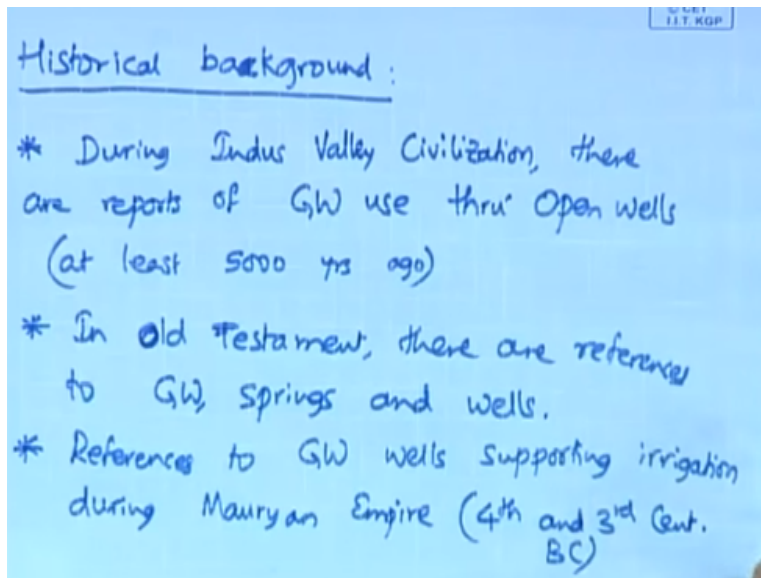 © CET
I.I.T. KGP
Historical background :
* During Indus Valley Civilization, there
are reports of GW use thru' Open wells
(at least 5000 yrs ago)
* In Old Testament, there are references
to GW, springs and wells.
* References to GW wells supporting irrigation
during Mauryan Empire (4th and 3rd Cent.
BC)